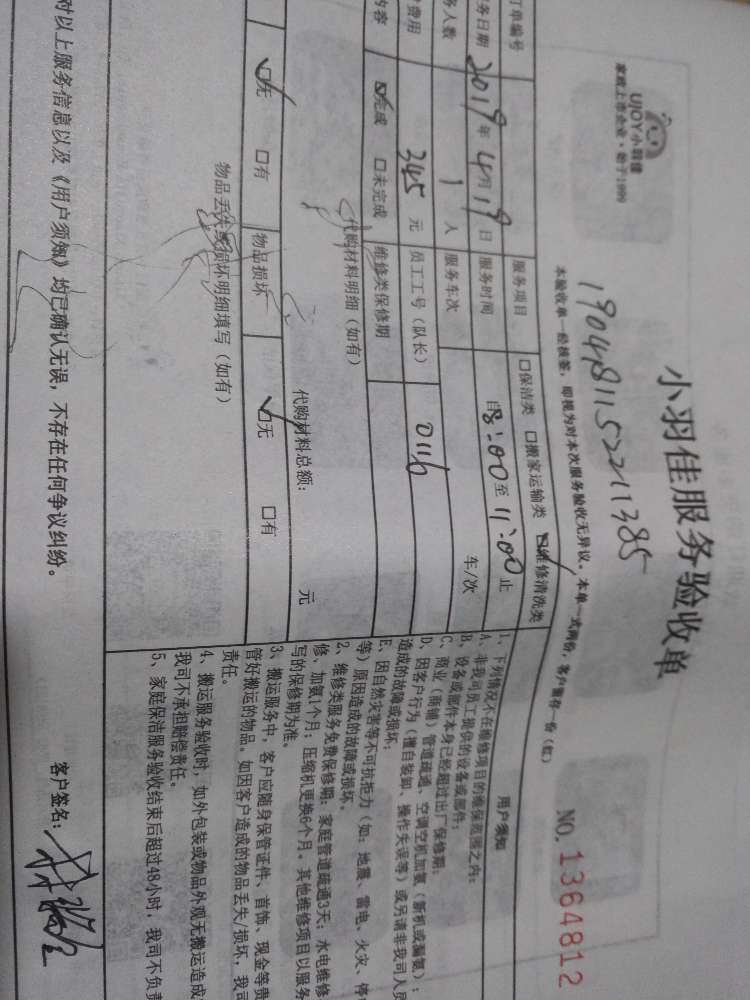 UJOY小羽佳
家政上市企业·始于1999
小羽佳服务验收单
NO.1364812
本验收单一经核签，即视为对本次服务验收无异议。本单一式两份，客户留存一份（红）
订单编号
服务项目 口保洁类 口搬家运输类 ☑维修清洗类
务日期 2019年4月19日 服务时间 自8:00至11:00止
务人数 1人 服务车次 车/次
费用 345元 员工工号（队长） 0116
内容 ☑完成 口未完成 维修类保修期
代购材料明细（如有）
代购材料总额： 元
☑无 口有 物品损坏 ☑无 口有
物品丢失或损坏明细填写（如有）
用户须知
1、下列情况不在维修项目的维保范围之内：
A、非我司员工提供的设备或部件；
B、设备或部件本身已经超过出厂保修期；
C、商业（商铺）管道疏通、空调空机加氨（新机或漏氨）；
D、因客户行为（擅自装卸、操作失误等）或另请非我司人员
造成的故障或损坏；
E、因自然灾害等不可抗拒力（如：地震、雷电、火灾、停
等）原因造成的故障或损坏。
2、维修类服务免费保修期：家庭管道疏通3天；水电维修
修、加氨1个月；压缩机更换6个月。其他维修项目以服务
写的保修期为准。
3、搬运服务中，客户应随身保管证件、首饰、现金等贵
管好搬运的物品。如因客户造成的物品丢失/损坏，我司
责任。
4、搬运服务验收时，如外包装或物品外观无搬运造成
我司不承担赔偿责任。
5、家庭保洁服务验收结束后超过48小时，我司不负责
对以上服务信息以及《用户须知》均已确认无误，不存在任何争议纠纷。
客户签名：